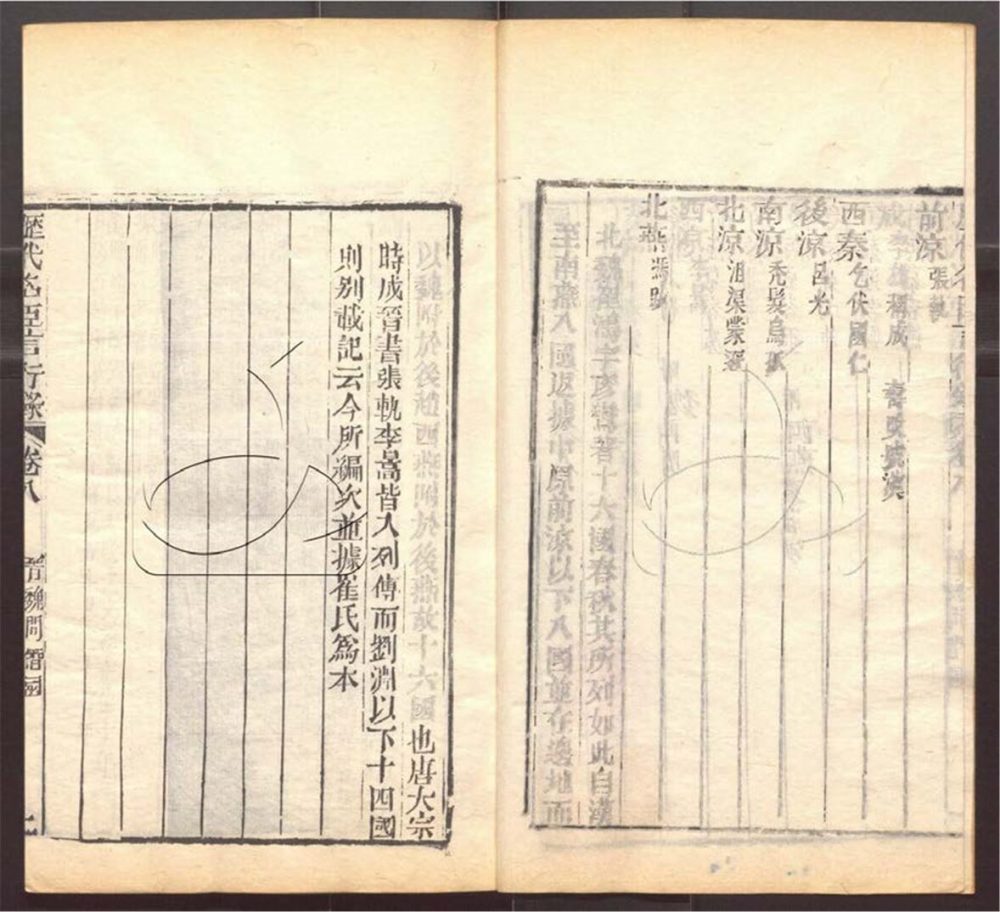 前涼張軌
成李雄稱成
後改號漢
西秦乞伏國仁
後涼呂光
南涼禿髮烏孤
北涼沮渠蒙遜
西涼李暠
北燕馮跋
北魏崔鴻字彥鸞著十六國春秋其所列如此自漢
至南燕八國迭據中原前涼以下八國並在邊地而
以魏附於後趙西燕附於後燕故十六國也唐大宗
時成晉書張軌李暠皆入列傳而劉淵以下十四國
則別載記云今所編次並據崔氏為本
歷代 臣言行錄 卷八 晉魏間僭國